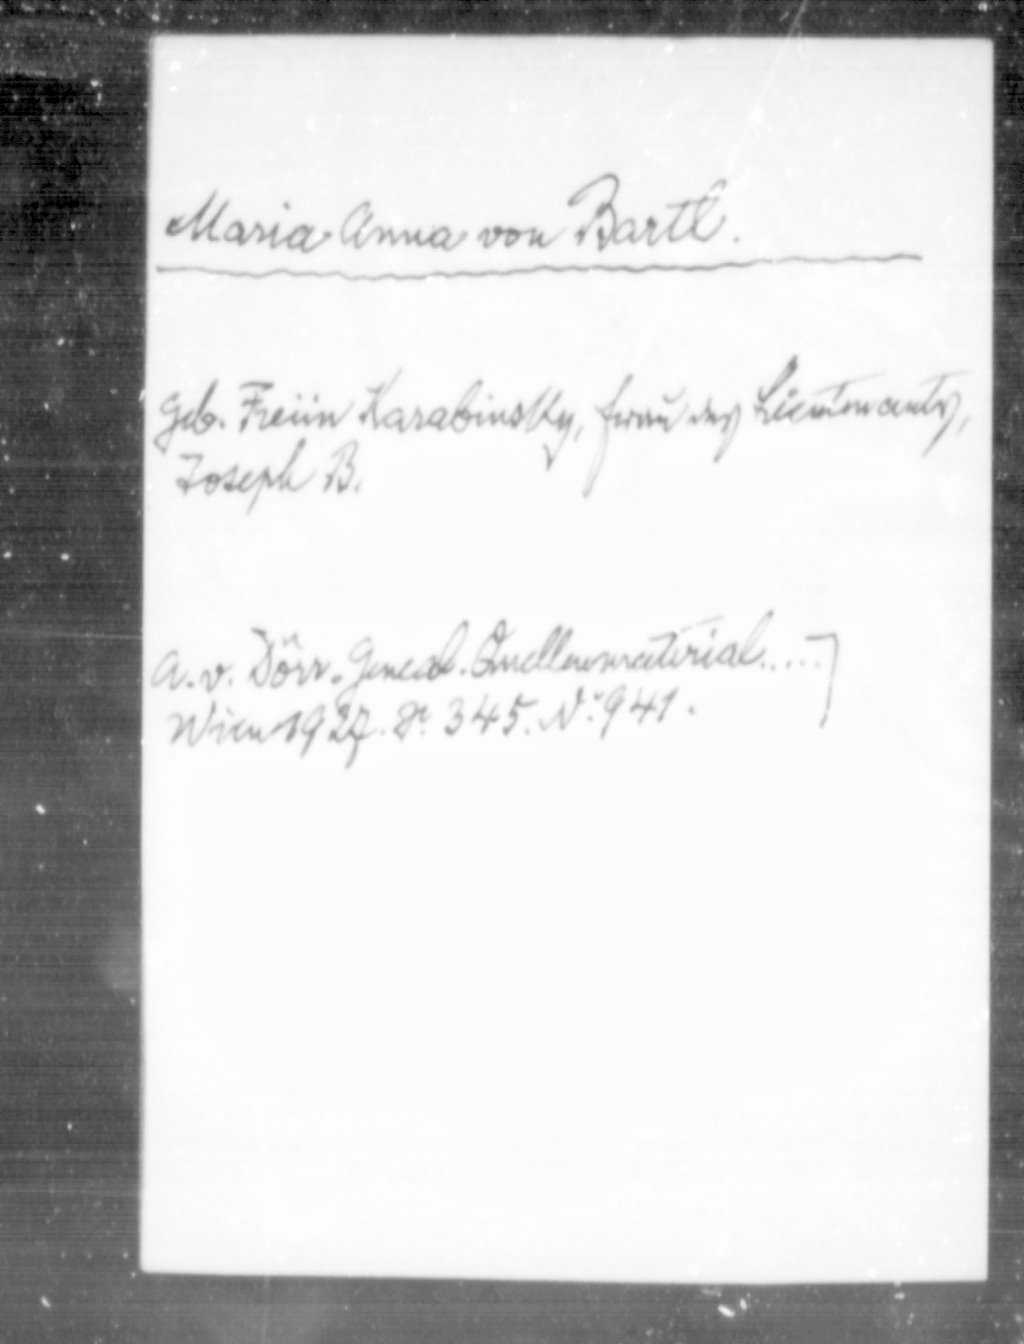 Maria Anna von Bartl.
geb. Freiin Karabinsky, Frau des Lieutenants,
Joseph B.
A. v. Dörr. Geneal. Quellenmaterial.....
Wien 1927. S. 345. N. 941.